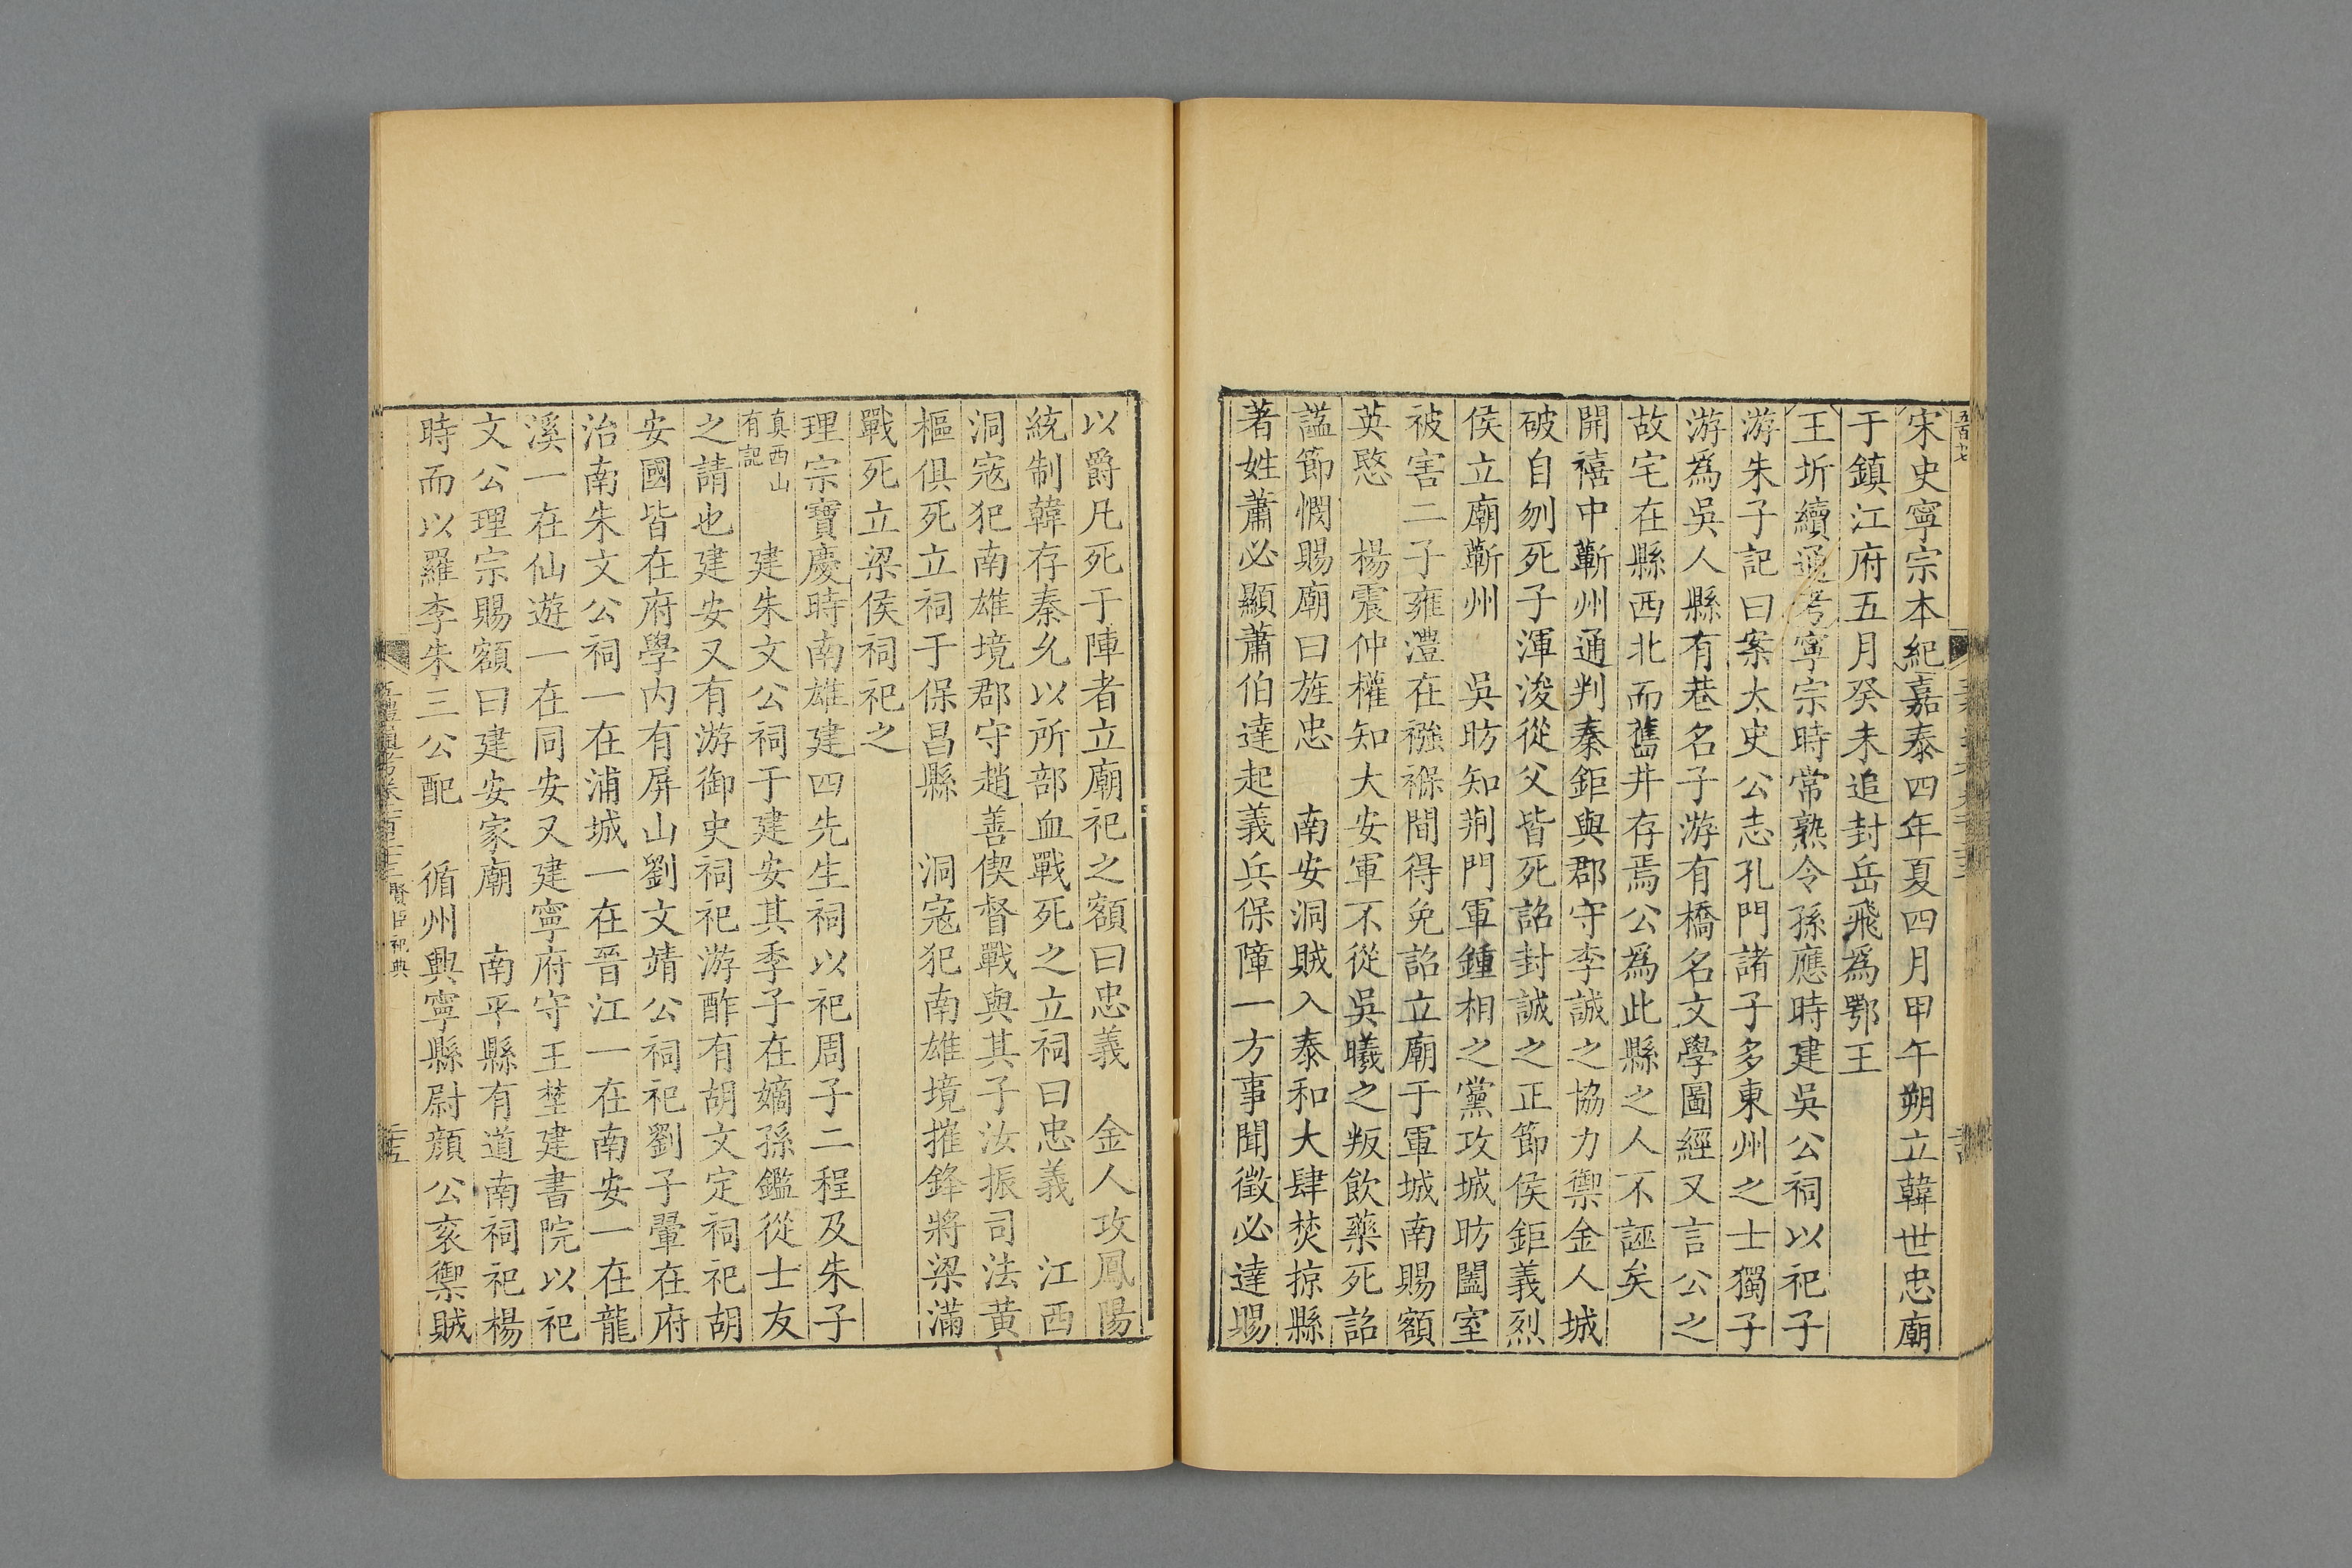 宋史寧宗本紀嘉泰四年夏四月甲午朔立韓世忠廟
于鎮江府五月癸未追封岳飛爲鄂王
王圻續通考寧宗時常熟令孫應時建吳公祠以祀子
游朱子記曰案太史公志孔門諸子多東州之士獨子
游爲吳人縣有巷名子游有橋名文學圖經又言公之
故宅在縣西北而舊井存焉公爲此縣之人不誣矣
開禧中蘄州通判秦鉅與郡守李誠之協力禦金人城
破自刎死子渾浚從父皆死詔封誠之正節侯鉅義烈
侯立廟蘄州 吳昉知荆門軍鍾相之黨攻城昉闔室
被害二子雍澧在襁褓間得免詔立廟于軍城南賜額
英愍 楊震仲權知大安軍不從吳曦之叛飲藥死詔
諡節憫賜廟曰旌忠 南安洞賊入泰和大肆焚掠縣
著姓蕭必顯蕭伯達起義兵保障一方事聞徵必達賜
以爵凡死于陣者立廟祀之額曰忠義 金人攻鳳陽
統制韓存秦允以所部血戰死之立祠曰忠義 江西
洞寇犯南雄境郡守趙善偰督戰與其子汝振司法黄
樞俱死立祠于保昌縣 洞寇犯南雄境摧鋒將梁滿
戰死立梁侯祠祀之
理宗寶慶時南雄建四先生祠以祀周子二程及朱子
真西山有記 建朱文公祠于建安其季子在嫡孫鑑從士友
之請也建安又有游御史祠祀游酢有胡文定祠祀胡
安國皆在府學内有屏山劉文靖公祠祀劉子翬在府
治南朱文公祠一在浦城一在晉江一在南安一在龍
溪一在仙遊一在同安又建寧府守王埜建書院以祀
文公理宗賜額曰建安家廟 南平縣有道南祠祀楊
時而以羅李朱三公配 循州興寧縣尉顔公袤禦賊
賢臣祀典